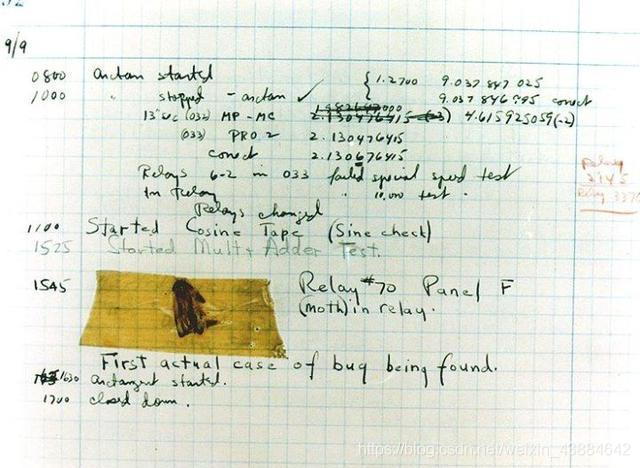 9/9
0800 arctan started { 1.2700 9.037 847 025
1000 " stopped - arctan ✓ 9.037 846 795 correct
13"uc (032) MP - MC 2.130476415 (-3) 4.615925059(-2)
(033) PRO 2 2.130476415
correct 2.130676415
Relays 6-2 in 033 failed special speed test
In Relay " 10.000 test.
Relay
3145
Relay 3370
Relays changed
1100 Started Cosine Tape (Sine check)
1525 Started Mult+Adder Test.
1545 Relay #70 Panel F
(moth) in relay.
First actual case of bug being found.
1630 arctangent started.
1700 closed down.
https://blog.csdn.net/weixin_43884642